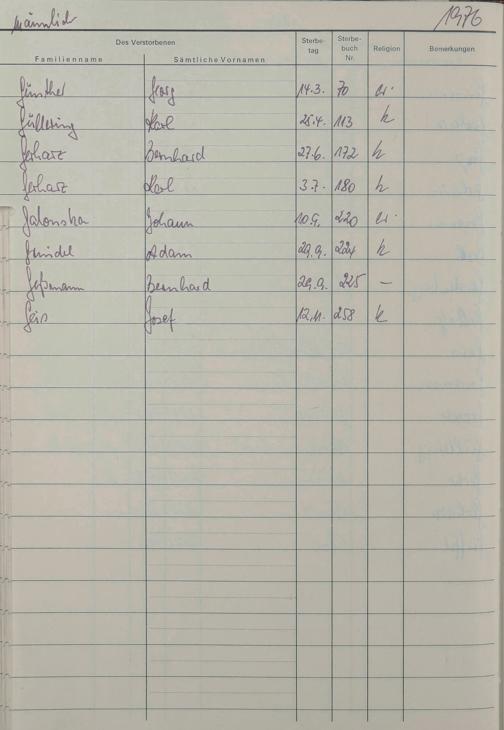 männlich 1976
Des Verstorbenen
Familienname Sämtliche Vornamen Sterbe-tag Sterbe-buch Nr. Religion Bemerkungen
Günther Georg 14.3. 70 ev.
Gültering Karl 25.4. 113 k
Gerharz Bernhard 27.6. 172 k
Gerharz Karl 3.7. 180 k
Galonska Johann 10.9. 220 ev.
Gundel Adam 29.9. 224 k
Geßmann Bernhard 29.9. 225 —
Geis Josef 12.11. 258 k